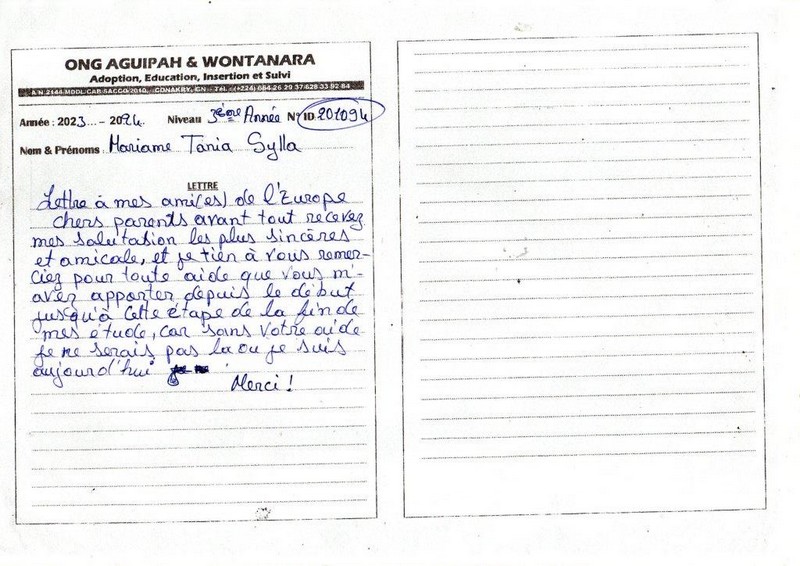 ONG AGUIPAH & WONTANARA
Adoption, Education, Insertion et Suivi
CONAKRY, GN - Tél.
Année : 2023 - 2024 Niveau 3ème Année N° ID 201094
Nom & Prénoms : Mariame Tania Sylla
LETTRE
Lettre à mes ami(es) de l'Europe
chers parents avant tout recevez
mes salutation les plus sincères
et amicale, et je tien à vous remer-
ciez pour toute aide que vous m'-
avez apporter depuis le début
jusqu'à cette étape de la fin de
mes étude, car sans votre aide
je ne serais pas la ou je suis
aujourd'hui
Merci !